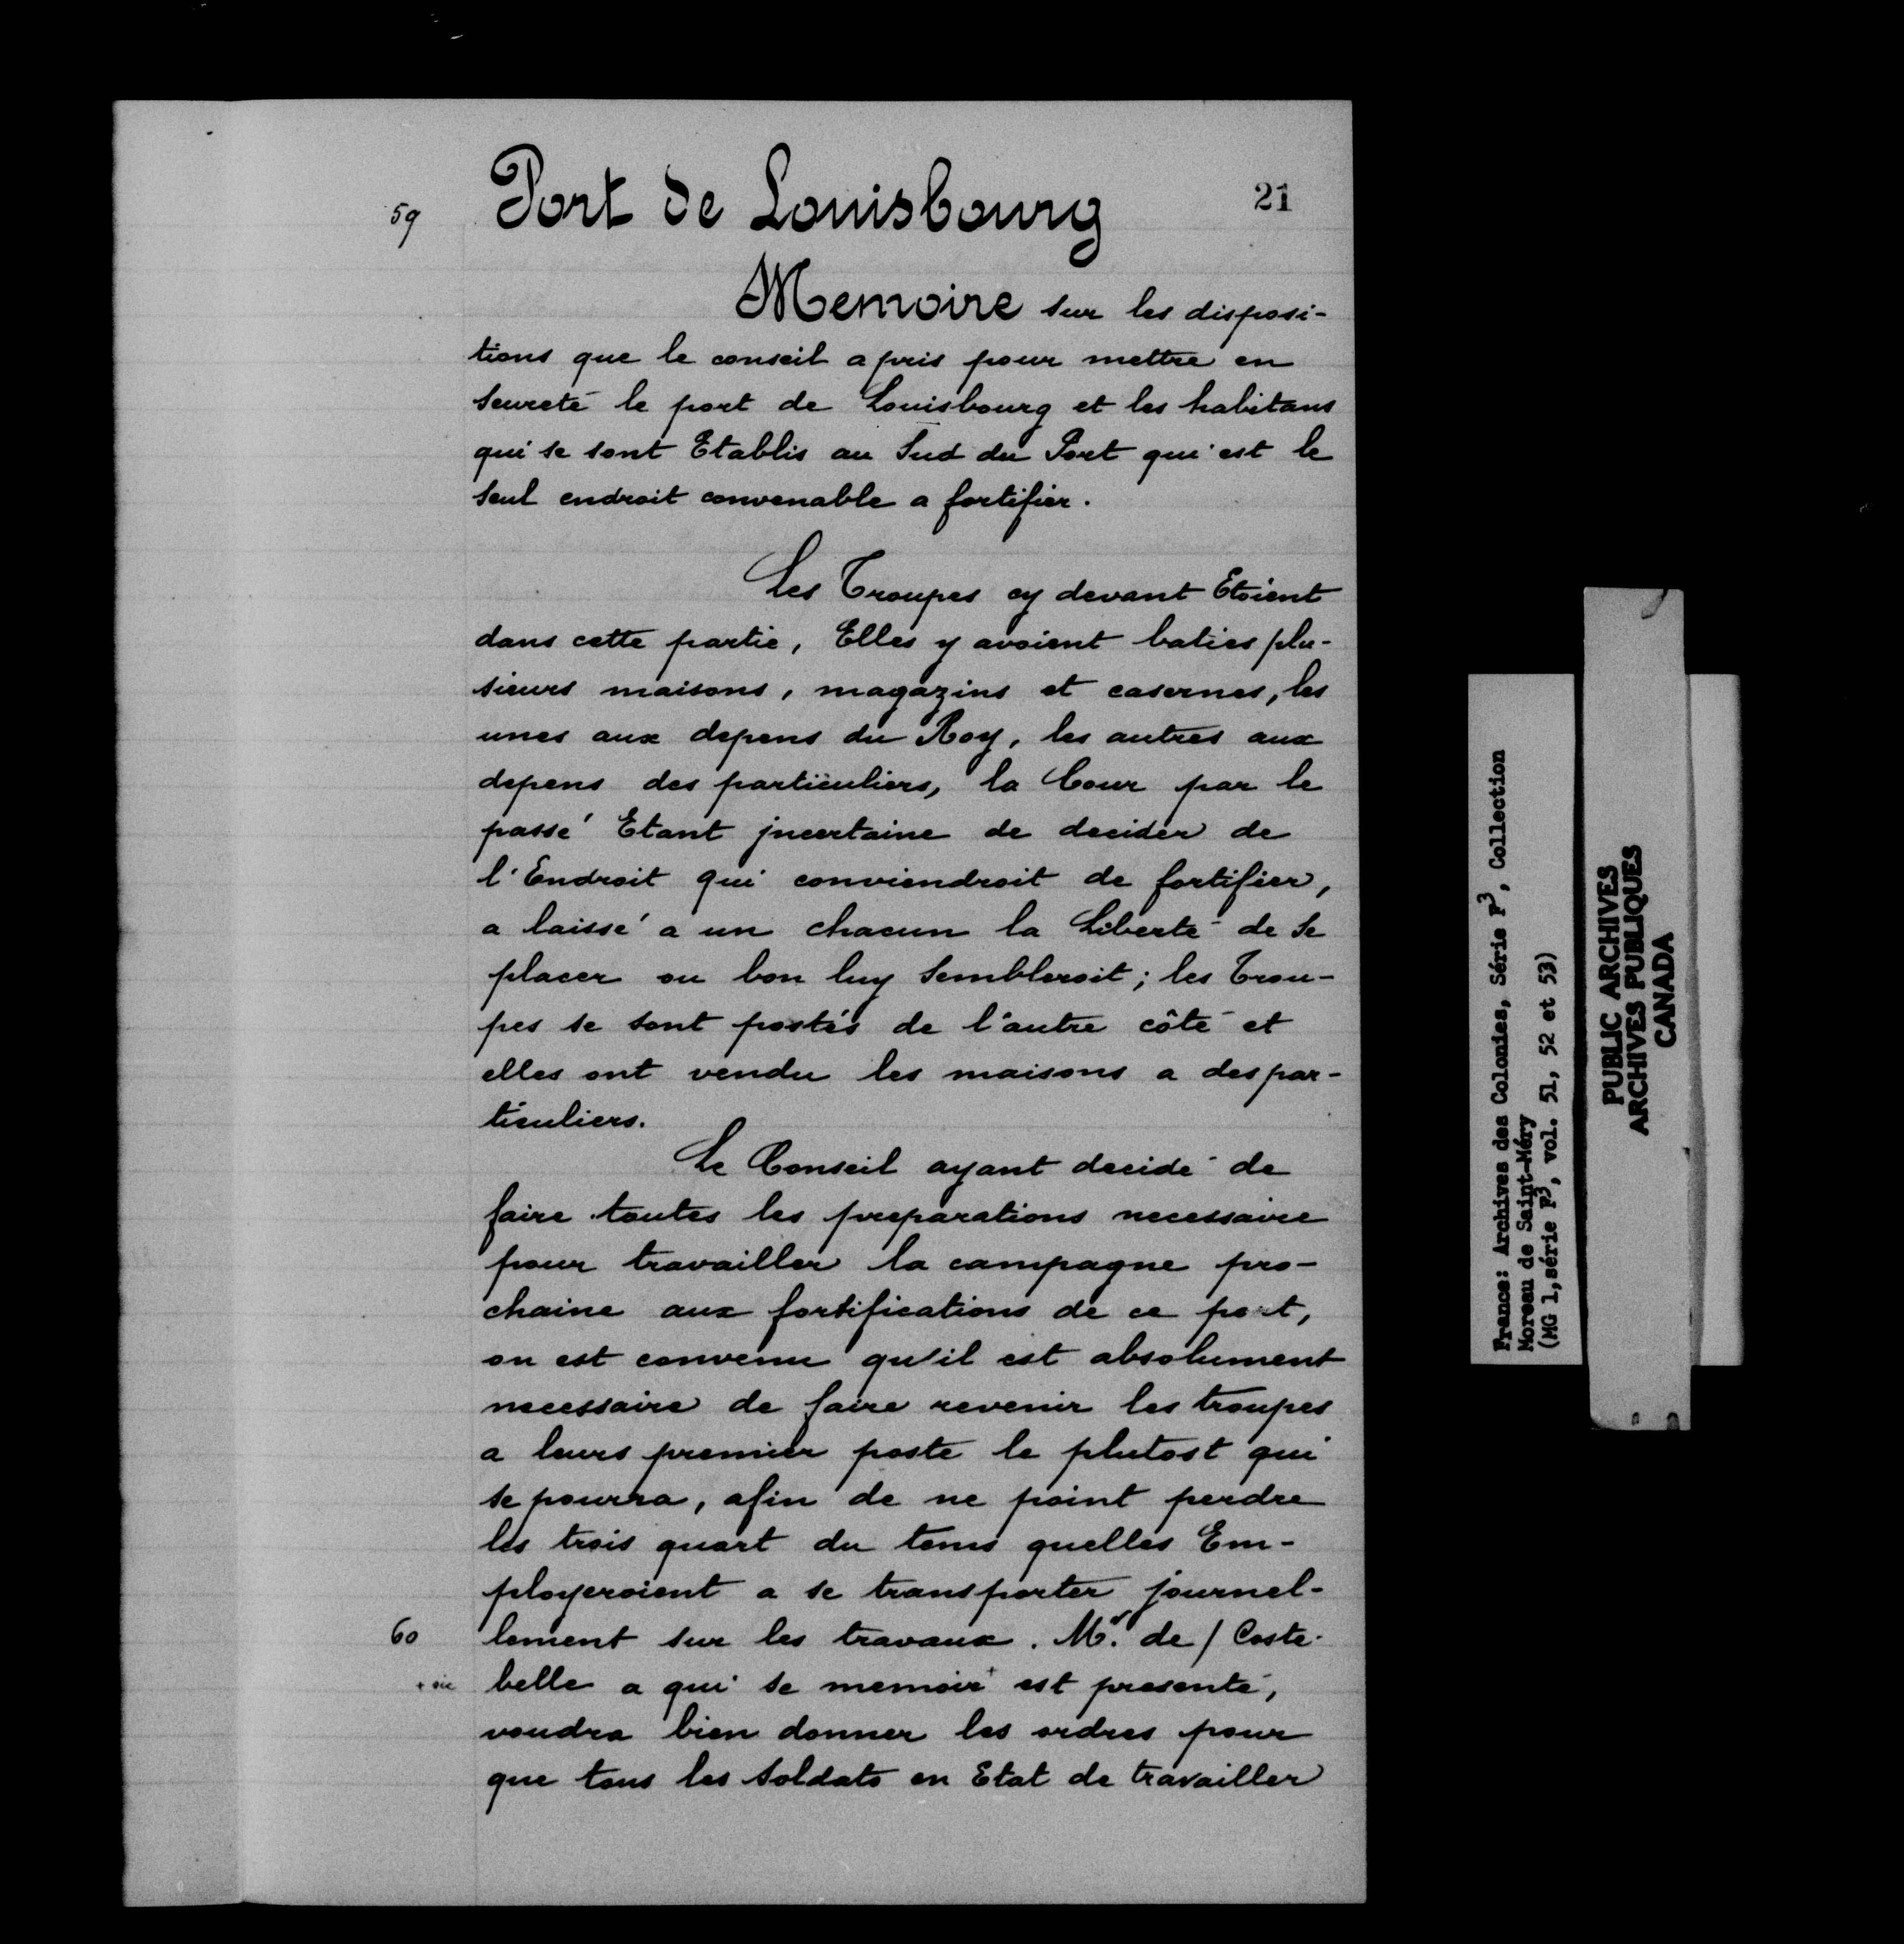 59 Port de Louisbourg 21
Memoire sur les disposi-
tions que le conseil a pris pour mettre en
seureté le port de Louisbourg et les habitans
qui se sont Etablis au Sud du Port qui est le
seul endroit convenable a fortifier.
Les Troupes cy devant Etoient
dans cette partie, Elles y avoient baties plu-
sieurs maisons, magazins et casernes, les
unes aux depens du Roy, les autres aux
depens des particuliers, la Cour par le
passé Etant jncertaine de decider de
l'Endroit qui conviendroit de fortifier,
a laissé a un chacun la Liberté de se
placer ou bon luy sembleroit; les Trou-
pes se sont postés de l'autre côté et
elles ont vendu les maisons a des par-
ticuliers.
Le Conseil ayant decidé de
faire toutes les preparations necessaire
pour travailler la campagne pro-
chaine aux fortifications de ce port,
on est convenu qu'il est absolument
necessaire de faire revenir les troupes
a leurs premier poste le plutost qui
se pourra, afin de ne point perdre
les trois quart du tems quelles Em-
ployeroient a se transporter journel-
60 lement sur les travaux. Mr. de / Coste-
+ sic belle a qui se memoir + est presenté,
voudra bien donner les ordres pour
que tous les soldats en Etat de travailler
France: Archives des Colonies, Série F3, Collection
Moreau de Saint-Méry
(MG 1, série F3, vol. 51, 52 et 53)
PUBLIC ARCHIVES
ARCHIVES PUBLIQUES
CANADA